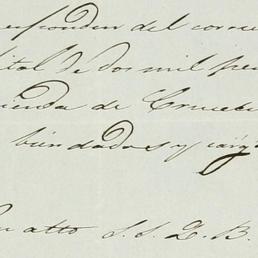 responder del corre
ital de dos mil pe
ienda de Cruce
bundados y carg
su atto S. S. Q. B.